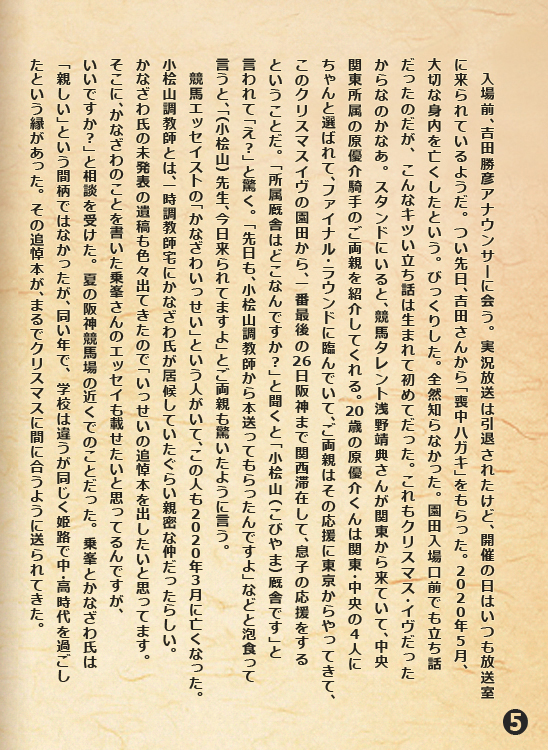 入場前、吉田勝彦アナウンサーに会う。実況放送は引退されたけど、開催の日はいつも放送室
に来られているようだ。つい先日、吉田さんから「喪中ハガキ」をもらった。2020年5月、
大切な身内を亡くしたという。びっくりした。全然知らなかった。園田入場口前でも立ち話
だったのだが、こんなキツい立ち話は生まれて初めてだった。これもクリスマス・イヴだった
からなのかなあ。スタンドにいると、競馬タレント浅野靖典さんが関東から来ていて、中央
関東所属の原優介騎手のご両親を紹介してくれる。20歳の原優介くんは関東・中央の4人に
ちゃんと選ばれて、ファイナル・ラウンドに臨んでいて、ご両親はその応援に東京からやってきて、
このクリスマスイヴの園田から、一番最後の26日阪神まで関西滞在して、息子の応援をする
ということだ。「所属厩舎はどこなんですか？」と聞くと「小桧山（こびやま）厩舎です」と
言われて「え？」と驚く。「先日も、小桧山調教師から本送ってもらったんですよ」などと泡食って
言うと、「（小桧山）先生、今日来られてますよ」とご両親も驚いたように言う。
競馬エッセイストの「かなざわいっせい」という人がいて、この人も2020年3月に亡くなった。
小桧山調教師とは、一時調教師宅にかなざわ氏が居候していたぐらい親密な仲だったらしい。
かなざわ氏の未発表の遺稿も色々出てきたので「いっせいの追悼本を出したいと思ってます。
そこに、かなざわのことを書いた乗峯さんのエッセイも載せたいと思ってるんですが、
いいですか？」と相談を受けた。夏の阪神競馬場の近くでのことだった。乗峯とかなざわ氏は
「親しい」という間柄ではなかったが、同い年で、学校は違うが同じく姫路で中・高時代を過ごし
たという縁があった。その追悼本が、まるでクリスマスに間に合うように送られてきた。
5